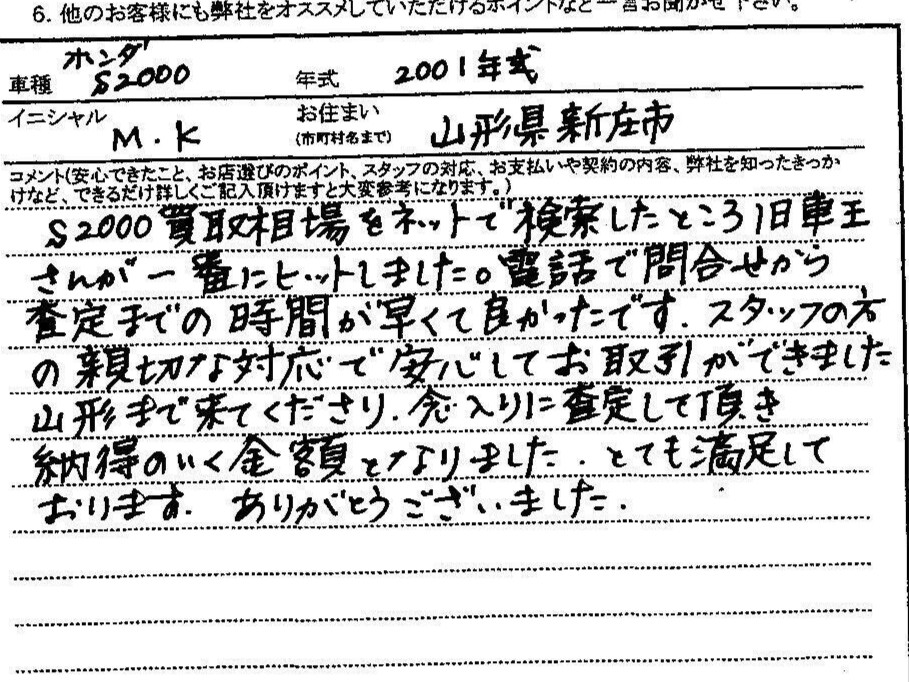 6. 他のお客様にも弊社をオススメしていただけるポイントなど一言お聞かせ下さい。
車種 ホンダ S2000 年式 2001年式
イニシャル M.K お住まい (市町村名まで) 山形県新庄市
コメント(安心できたこと、お店選びのポイント、スタッフの対応、お支払いや契約の内容、弊社を知ったきっか
けなど、できるだけ詳しくご記入頂けますと大変参考になります。)
S2000買取相場をネットで検索したところ旧車王
さんが一番にヒットしました。電話で問合せから
査定までの時間が早くて良かったです.スタッフの方
の親切な対応で安心してお取引ができました
山形まで来てくださり.念入りに査定して頂き
納得のいく金額となりました.とても満足して
おります.ありがとうございました.